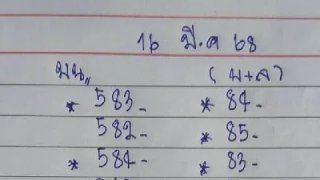 16 มี.ค 68
บน, (บ+ล)
* 583- * 84-
582- * 85-
* 584- * 83-